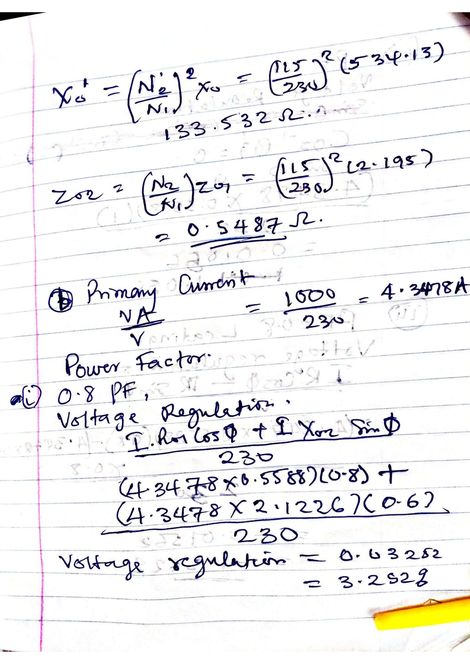 X₀' = (N₂'/N₁)² X₀ = (115/230)² (534.13)
133.532 Ω.
Z₀₂ = (N₂/N₁) Z₀₁ = (115/230)² (2.195)
= 0.5487 Ω.
(b) Primary Current
VA/V = 1000/230 = 4.3478A
Power Factor.
(i) 0.8 PF,
Voltage Regulation.
I R₀₁ Cos Φ + I X₀₂ Sin Φ
230
(4.3478 × 0.5588)(0.8) +
(4.3478 × 2.1226)(0.6)
230
Voltage regulation = 0.03252
= 3.252%